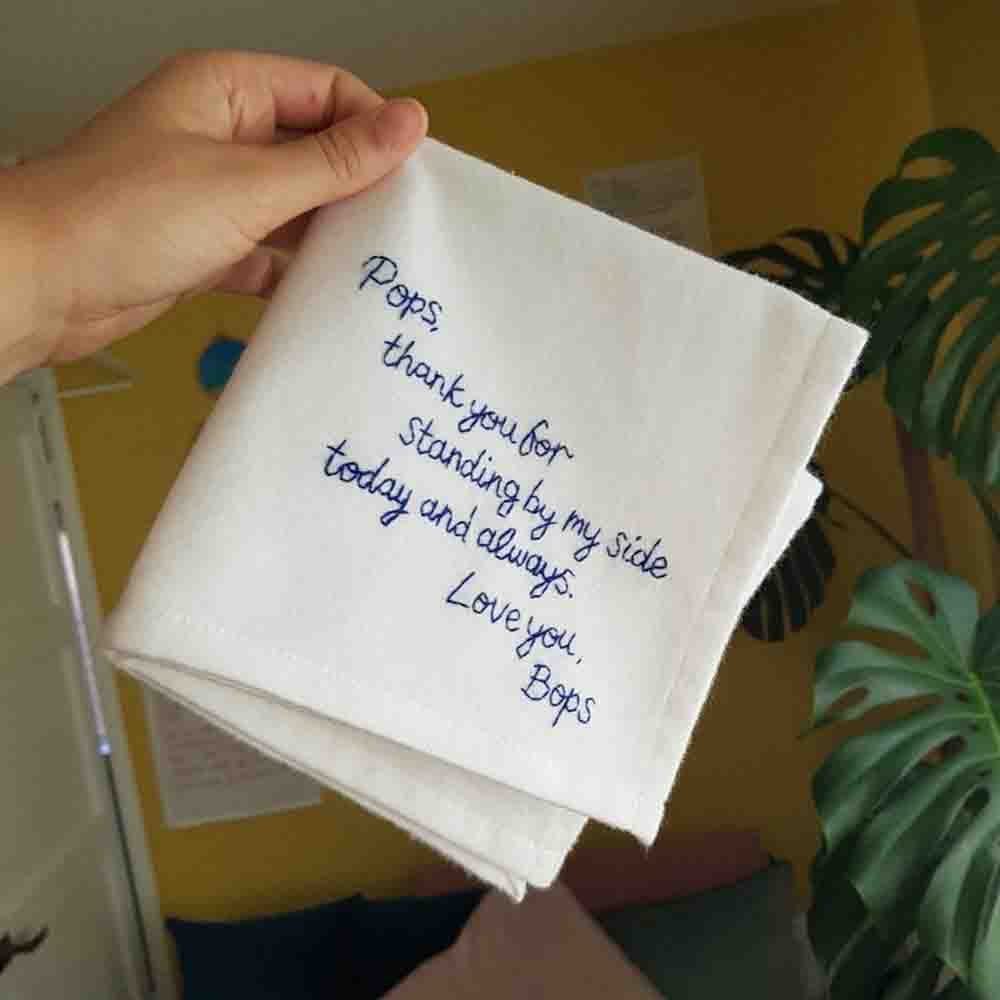 Pops,
thank you for
standing by my side
today and always.
Love you,
Bops